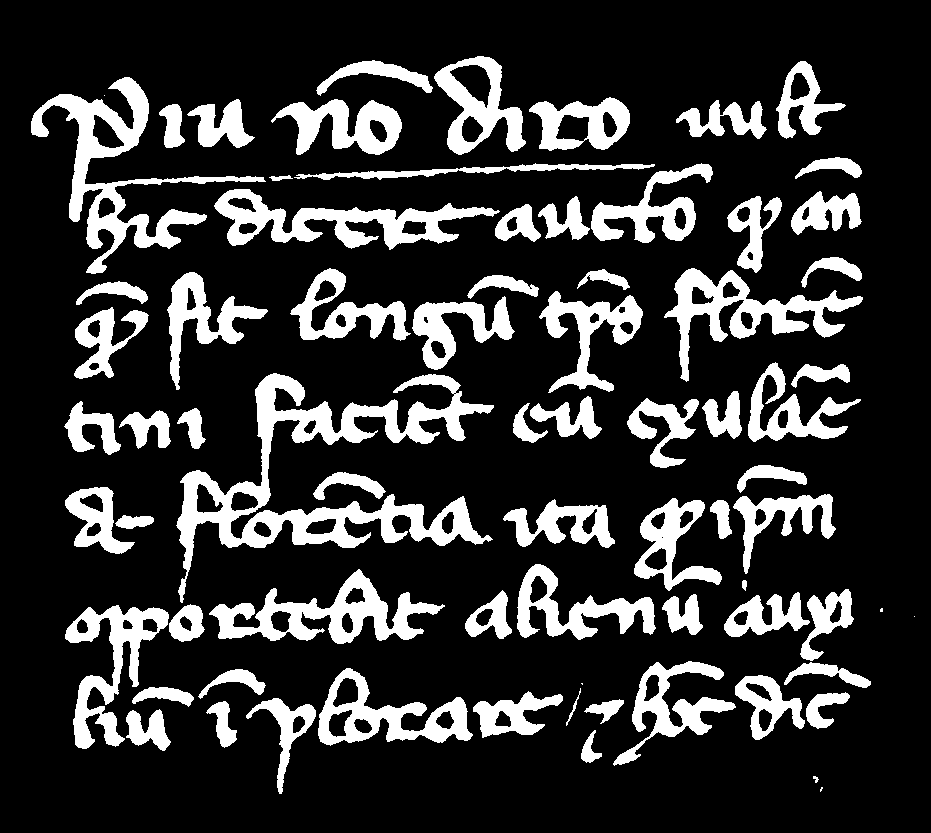 Piu nō diro vult
hic dicere auctō ꝙ an̄
ꝙ̄ sit longū tp̄s florē
tini faciēt eū exulāē
de florētia ita ꝙ ip̄m
opportebit alienū auxi
liū īplorare / ⁊ hoc dic̄